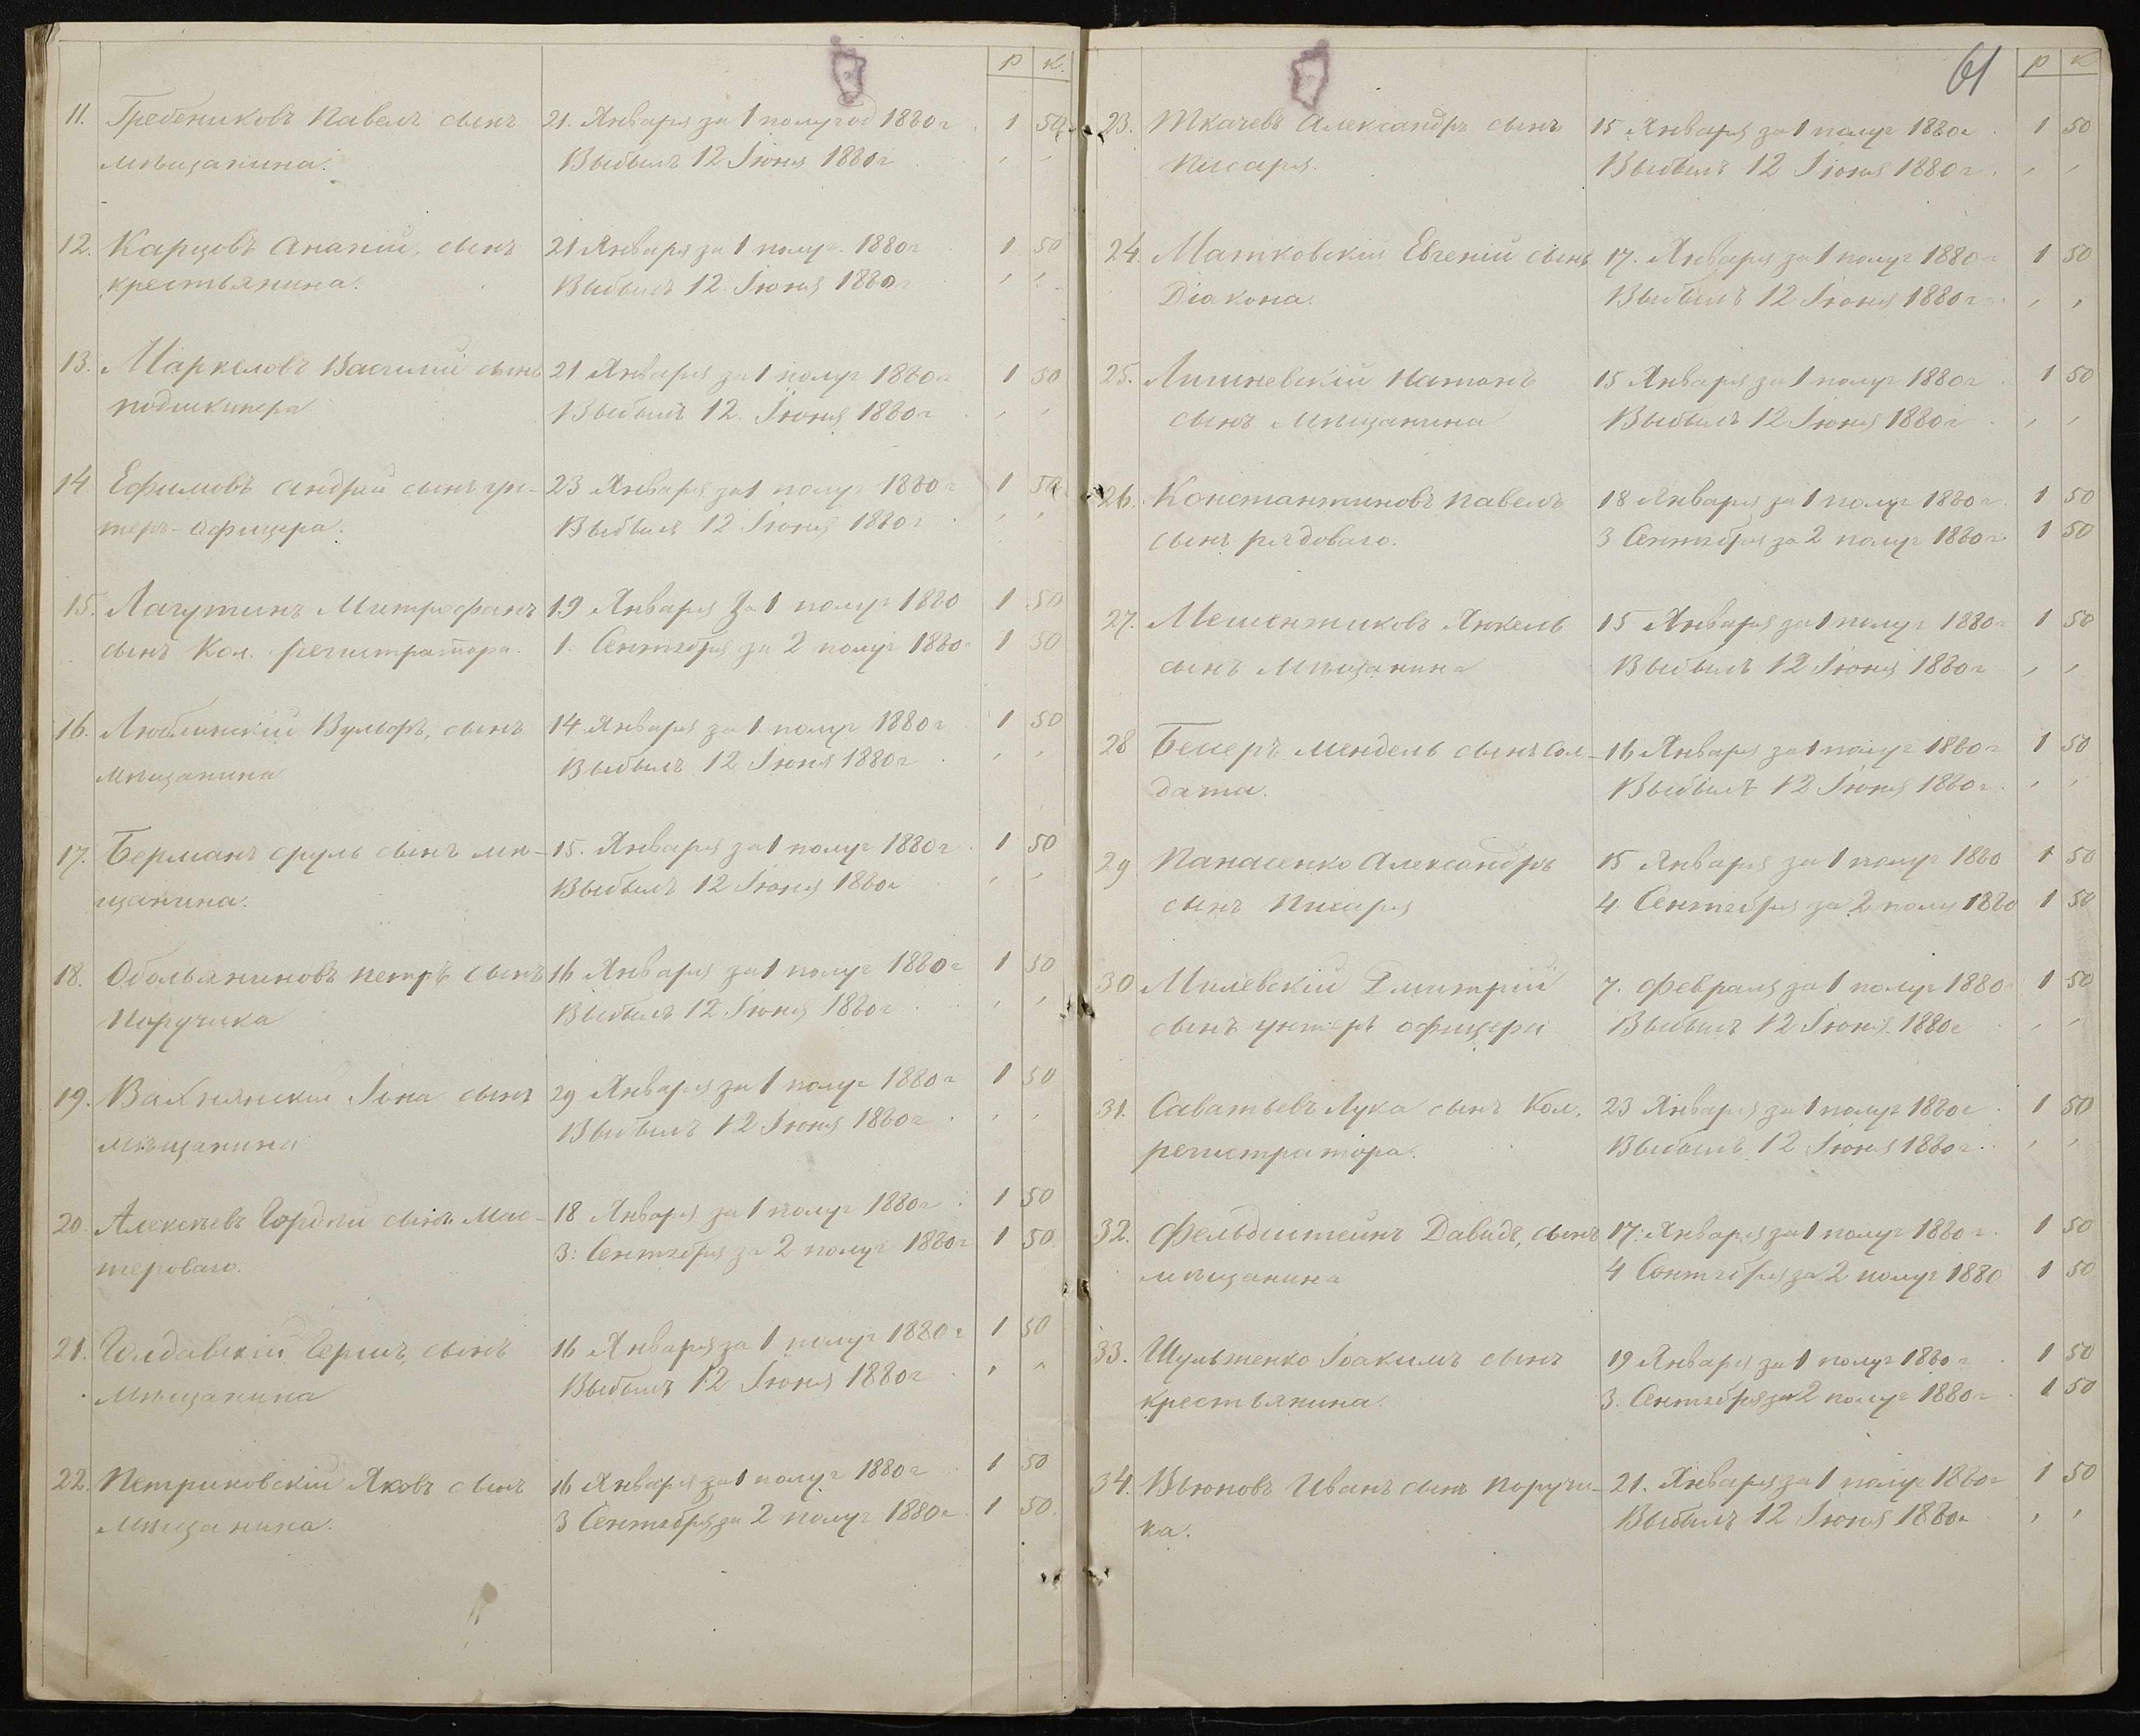 р к.
11. Гребениковъ Павелъ сынъ 21. Января за 1 полугод 1880 г. 1 50
мѣщанина. Выбылъ 12 Іюня 1880 г " "
12. Карцовъ Ананій, сынъ 21 Января за 1 полуг. 1880 г 1 50
крестьянина. Выбылъ 12. Іюня 1880 г " "
13. Маркеловъ Василий сынъ 21 Января за 1 полуг 1880 г 1 50
подшкипера Выбылъ 12. Іюня 1880 г. " "
14 Ефимовъ Андрей сынъ ун- 23 Января за 1 полуг 1880 г 1 50
теръ-офицера. Выбылъ 12 Іюня 1880 г. " "
15. Лагутинъ Митрофанъ 19 Января за 1 полуг 1880 1 50
сынъ Кол. регистратора. 1. Сентября за 2 полуг 1880 г 1 50
16. Люблинскій Вульфъ, сынъ 14 Января за 1 полуг 1880 г 1 50
мѣщанина Выбылъ 12 Іюня 1880 г. " "
17. Берманъ Сруль сынъ мѣ- 15. Января за 1 полуг 1880 г. 1 50
щанина. Выбылъ 12 Іюня 1880 г " "
18. Обольяниновъ Петръ сынъ 16 Января за 1 полуг 1880 г 1 50
Поручика Выбылъ 12 Іюня 1880 г " "
19. Іона сынъ 29 Января за 1 полуг 1880 г 1 50
мѣщанина Выбылъ 12 Іюня 1880 г. " "
20. Алексѣевъ Гордѣй сынъ Мас- 18 Января за 1 полуг 1880 г. 1 50
тероваго. 3. Сентября за 2 полуг 1880 г 1 50
21. Голдавскій Гершъ, сынъ 16 Января за 1 полуг 1880 г 1 50
Мѣщанина Выбылъ 12 Іюня 1880 г. " "
22. Петриковскій Яковъ сынъ 16 Января за 1 полуг 1880 г 1 50
Мѣщанина. 3 Сентября за 2 полуг 1880 г. 1 50.
61 р к
23. Ткачевъ Александръ сынъ 15 Января за 1 полуг 1880 г. 1 50
Писаря. Выбылъ 12 Іюня 1880 г. " "
24. Матковскій Евгеній сынъ 17. Января за 1 полуг 1880 г 1 50
Діакона. Выбылъ 12 Іюня 1880 г. " "
25. Натанъ 15 Января за 1 полуг 1880 г. 1 50
сынъ Мѣщанина Выбылъ 12 Іюня 1880 г. " "
26. Константиновъ Павелъ 18 Января за 1 полуг 1880 г. 1 50
сынъ рядоваго. 3 Сентября за 2 полуг 1880 г. 1 50
27. Янкель 15 Января за 1 полуг 1880 г 1 50
сынъ Мѣщанина Выбылъ 12 Іюня 1880 г " "
28 Бекеръ Мендель сынъ Сол- 16 Января за 1 полуг 1880 г 1 50
дата. Выбылъ 12 Іюня 1880 г. " "
29 Панасенко Александръ 15 Января за 1 полуг 1880 1 50
сынъ Писаря 4. Сентября за 2 полуг 1880 1 50
30 Милевскій Дмитрій 7. Февраля за 1 полуг 1880 г 1 50
сынъ унтеръ офицера Выбылъ 12 Іюня 1880 г " "
31. Саватьевъ Лука сынъ Кол. 23 Января за 1 полуг 1880 г. 1 50
регистратора. Выбылъ 12 Іюня 1880 г. " "
32. Фельдштейнъ Давидъ, сынъ 17. Января за 1 полуг 1880 г. 1 50
мѣщанина 4 Сентября за 2 полуг 1880 1 50
33. Шульженко Іоакимъ сынъ 19 Января за 1 полуг 1880 г. 1 50
крестьянина. 3. Сентября за 2 полуг 1880 г. 1 50
34. Вьюновъ Иванъ сынъ Поручи- 21. Января за 1 полуг 1880 г 1 50
ка. Выбылъ 12 Іюня 1880 г. " "